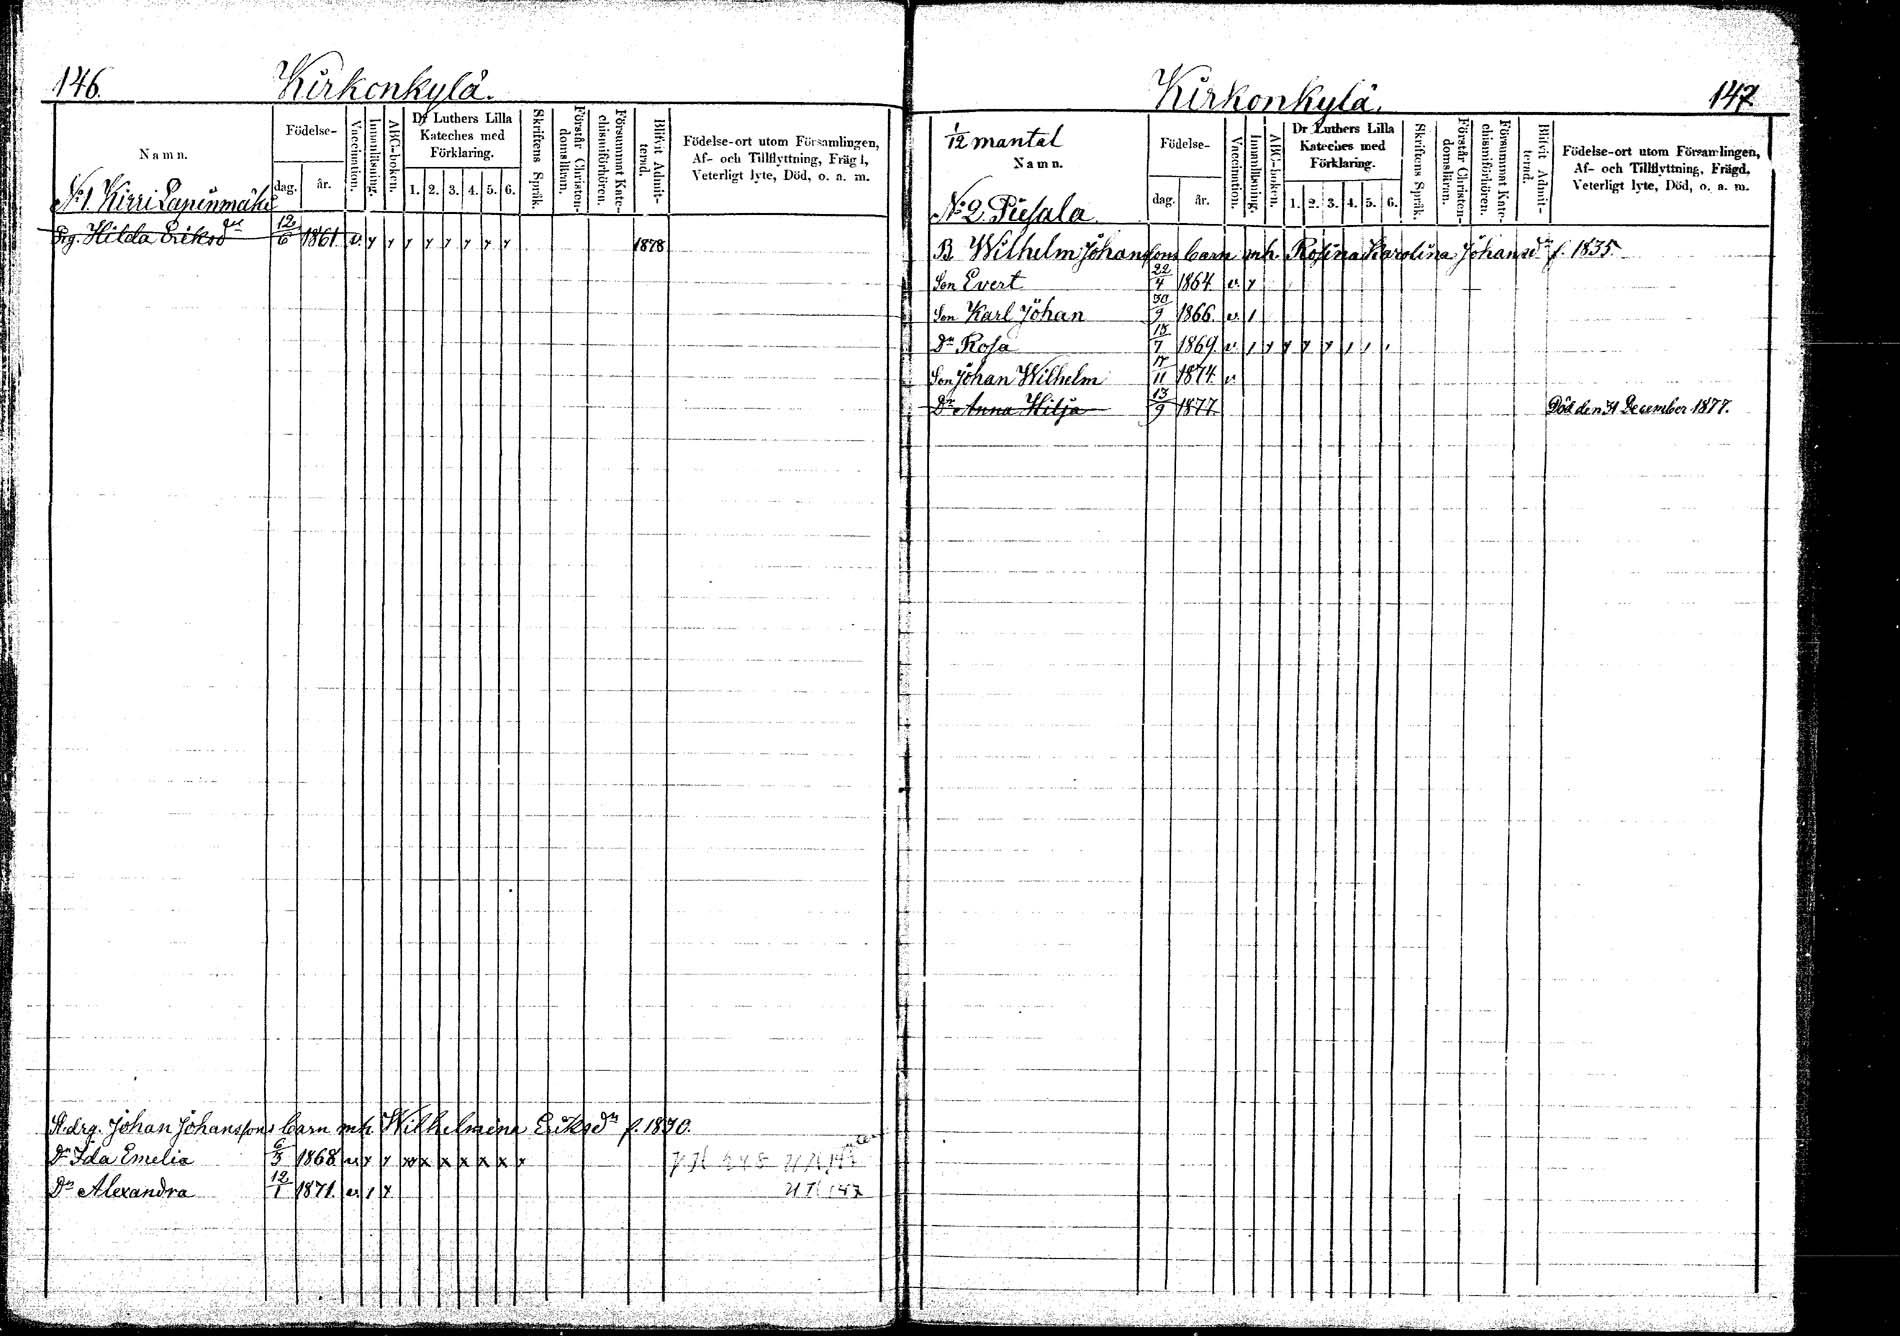 146.
Kirkonkylä.
Namn.
Födelse-
dag.
år.
Vaccination.
Innanläsning.
ABC-boken.
Dr Luthers Lilla
Kateches med
Förklaring.
1. 2. 3. 4. 5. 6.
Skriftens Språk.
Förstår Christen-
domsläran.
Försummat Kate-
chismiförhören.
Blifvit Admit-
terad.
Födelse-ort utom Församlingen,
Af- och Tillflyttning, Frägd,
Veterligt lyte, Död, o. a. m.
No 1. Kirri Lapinmäki
Drg. Hilda Eriksdr 12/6 1861 v. 1878
St.drg. Johan Johanssons barn mh. Wilhelmina Eriksdr f. 1830.
Dr Ida Emelia 6/3 1868 v. x x x x x x x x
Dr Alexandra 12/1 1871 v.
147
Kirkonkylä.
147
1/12 mantal
Namn.
Födelse-
dag.
år.
Vaccination.
Innanläsning.
ABC-boken.
Dr Luthers Lilla
Kateches med
Förklaring.
1. 2. 3. 4. 5. 6.
Skriftens Språk.
Förstår Christen-
domsläran.
Försummat Kate-
chismiförhören.
Blifvit Admit-
terad.
Födelse-ort utom Församlingen,
Af- och Tillflyttning, Frägd,
Veterligt lyte, Död, o. a. m.
No 2. Piesala
B. Wilhelm Johanssons barn mh. Rosina Karolina Johansdr f. 1835.
Son Evert 22/4 1864 v.
Son Karl Johan 30/9 1866 v.
Dr Rosa 18/7 1869 v.
Son Johan Wilhelm 17/11 1874 v.
Dr Anna Hilja 13/9 1877 Död den 31 December 1877.